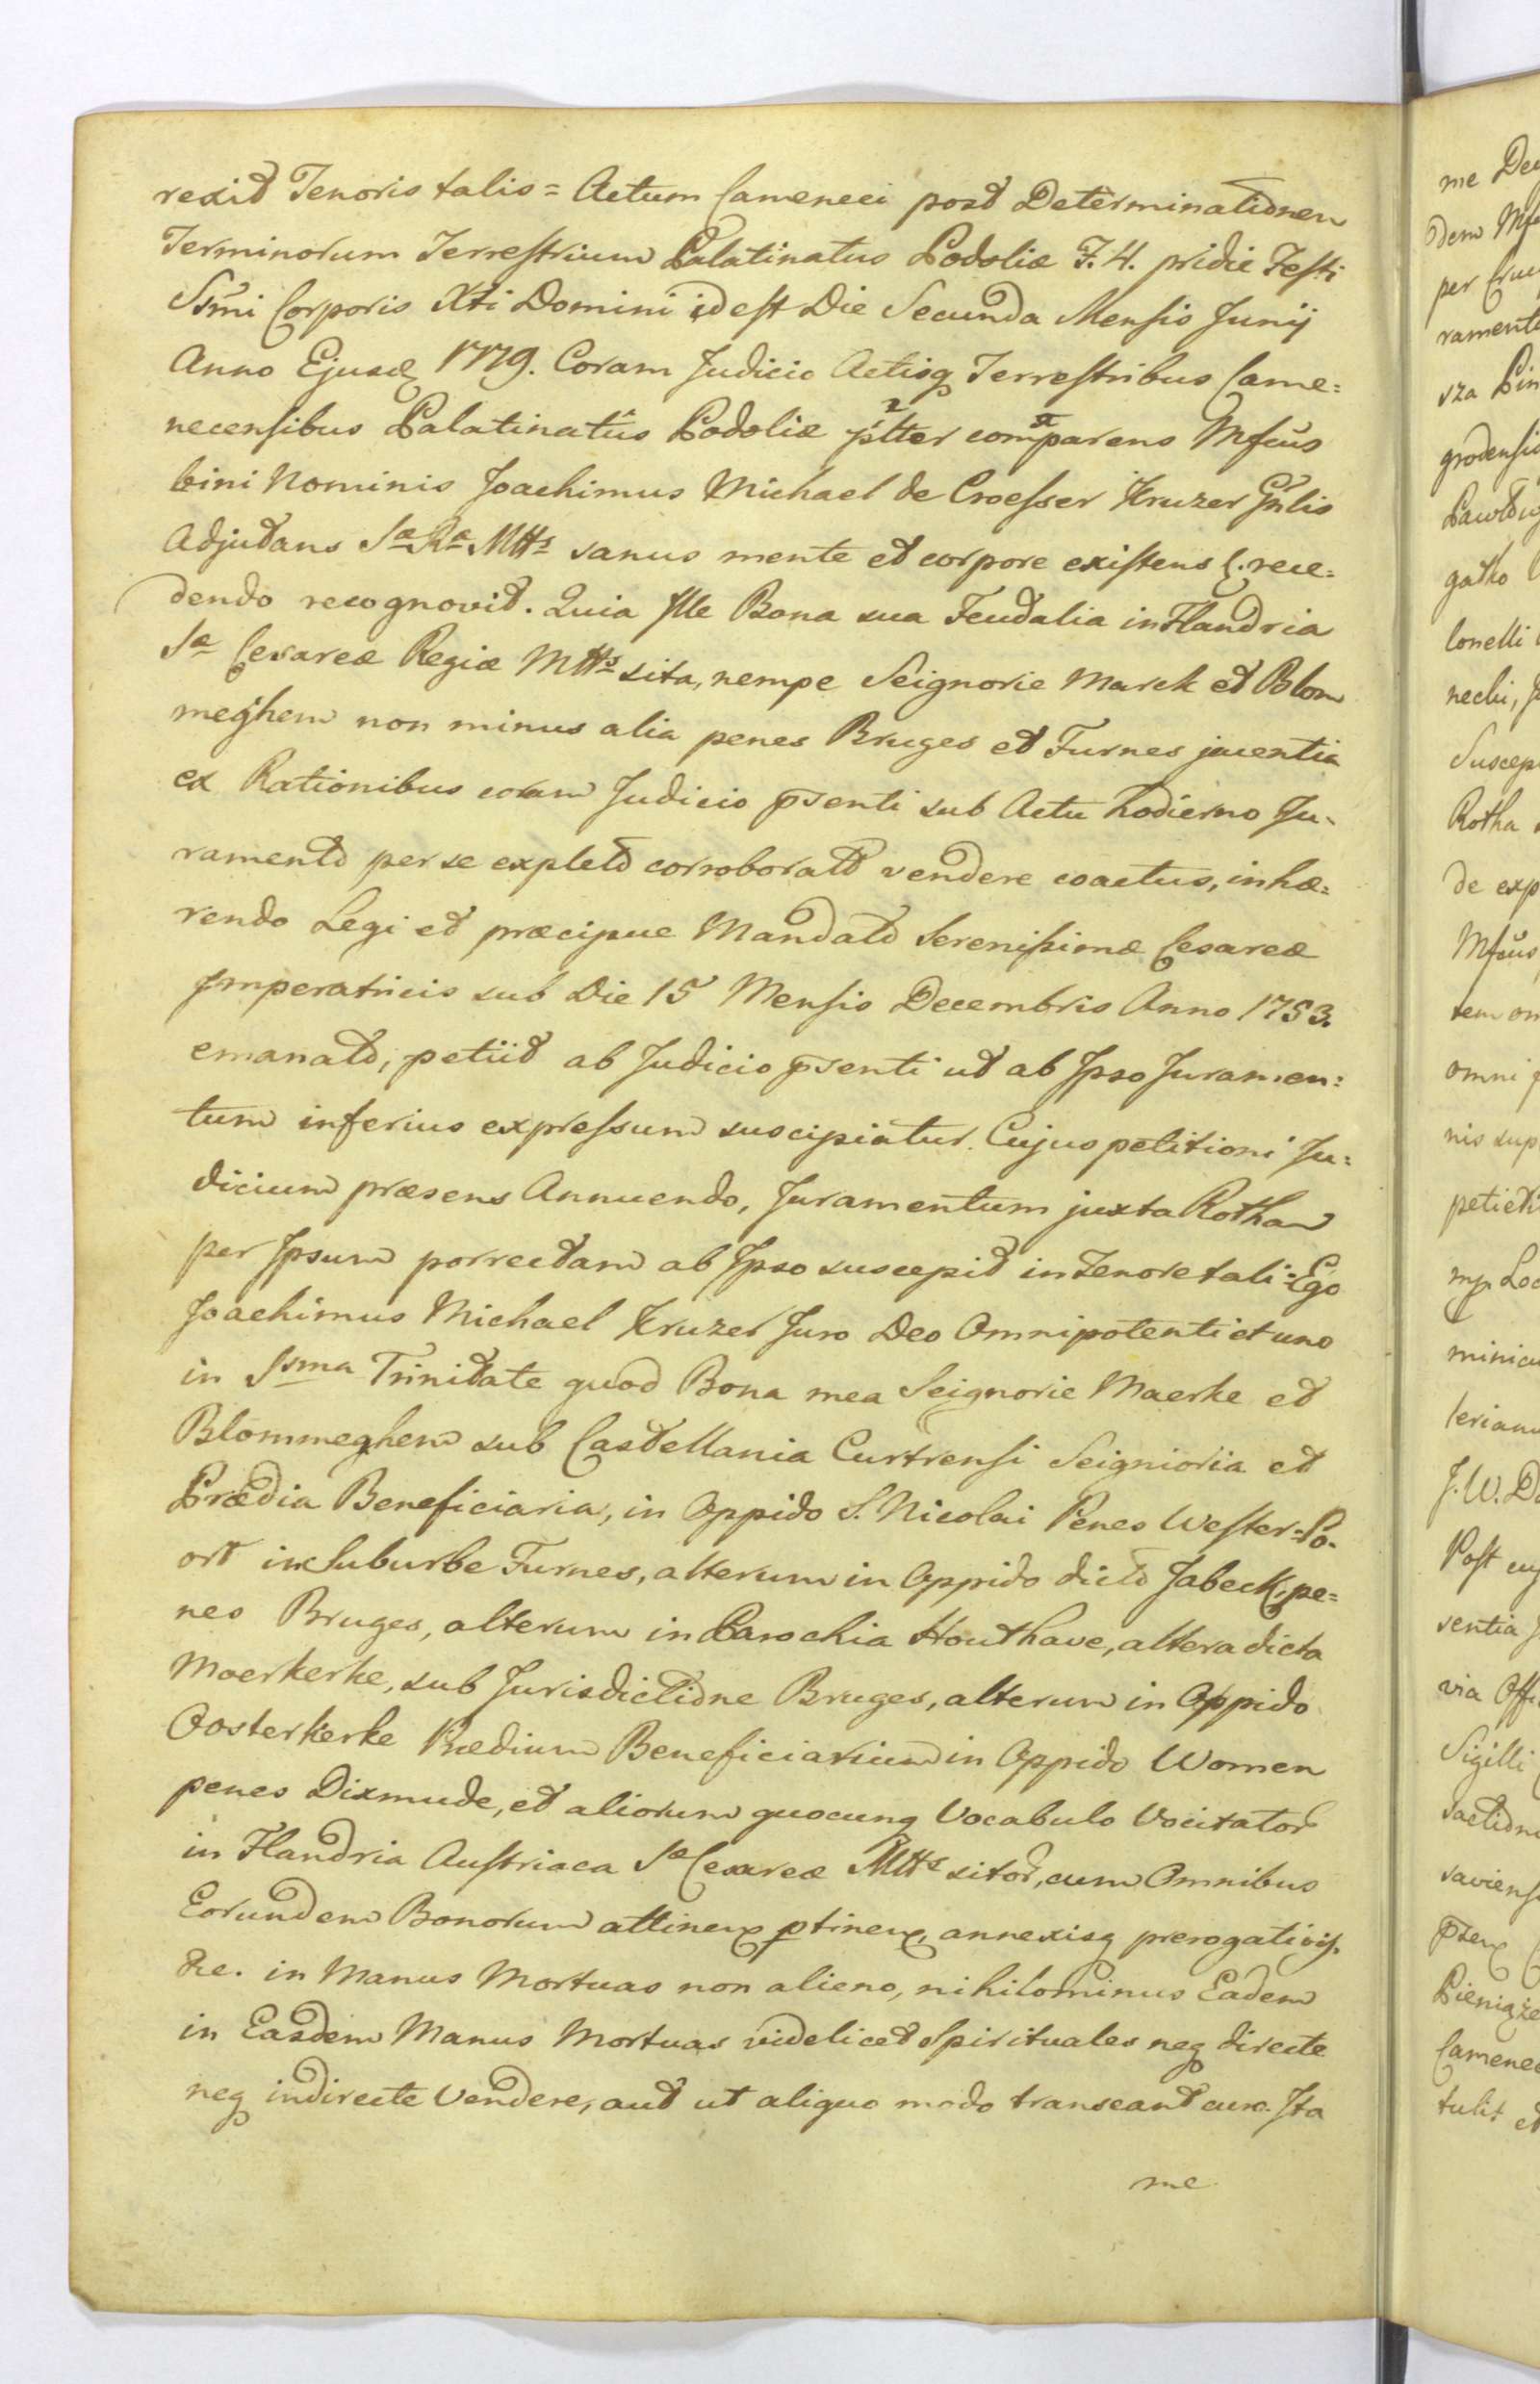 rexit Tenoris talis = Actum Cameneci post Determinationem
Terminorum Terrestrium Palatinatus Podoliæ F. 4. pridie Festi
Ssmi Corporis Xti Domini id est Die Secunda Mensis Junij
Anno Ejusd 1779. Coram Judicio Actisq Terrestribus Came=
necensibus Palatinatûs Podoliæ psltter comparens Mfcus
bini Nominis Joachimus Michael de Croesser Kruzer Gnlis
Adjutans Sæ Ræ Mttis sanus mente et corpore existens rece=
dendo recognovit. Quia Ille Bona sua Feudalia in Flandria
Sæ Cesareæ Regiæ Mttis sita, nempe Seignorie Marck et Blom
meghem non minus alia penes Bruges et Furnes jacentia
ex Rationibus coram Judicio psenti sub Actu hodierno Ju-
ramento per se expleto corroborato vendere coactus, inhæ=
rendo Legi et præcipue Mandato Serenissimæ Cesareæ
Imperatricis sub Die 15 Mensis Decembris Anno 1753.
emanato, petiit ab Judicio psenti ut ab Ipso Juramen=
tum inferius expressum suscipiatur. Cujus petitioni Ju=
dicium præsens Annuendo, Juramentum juxta Rotham
per Ipsum porrectam ab Ipso suscepit in Tenore tali = Ego
Joachimus Michael Kruzer Juro Deo Omnipotenti et uno
in Ssma Trinitate quod Bona mea Seignorie Maerke et
Blommeghem sub Castellania Curtrensi Seignioria et
Prædia Beneficiaria, in Oppido S. Nicolai Penes Wester=Po-
ort in Suburbe Furnes, alterum in Oppido dicto Jabeck, pe=
nes Bruges, alterum in Parochia Houthave, altera dicta
Moerkerke, sub Jurisdictione Bruges, alterum in Oppido
Oosterkerke Prædium Beneficiarium in Oppido Women
penes Dixmude, et aliorum quocunq Vocabulo Vocitator
in Flandria Austriaca Sæ Cesareæ Mttis sitor, cum Omnibus
Eorundem Bonorum attinen ptinen, annexisq prerogativis
&c. in Manus Mortuas non alieno, nihilominus Eadem
in Easdem Manus Mortuas videlicet Spirituales neq directe
neq indirecte Vendere, aut ut aliquo modo transeant curo. Ita
me
me
dem
per
ramento
sza
grodensi
gatko
lonelli
necki,
Suscep
Rotha
de exp
Mfcus
tem om
omni
nis sup
petiti
mp. Loc
minicu
J. W. D
Post
sentia
via Offi
Sigilli
sactione
saviens
Camene
tulit et